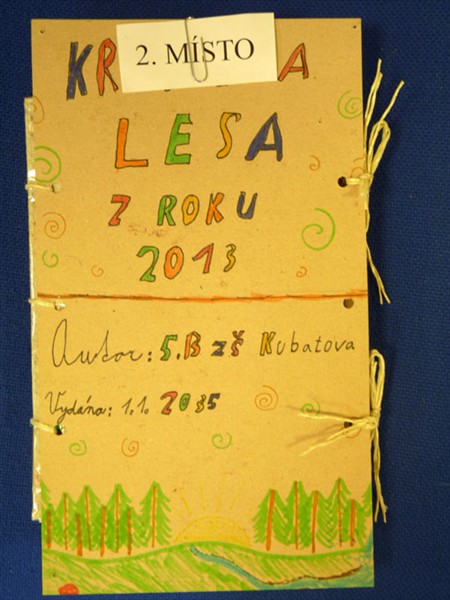 2. MÍSTO
LESA
Z ROKU
2013
Autor: 5.B ZŠ Kubatova
Vydána: 1.1. 2035